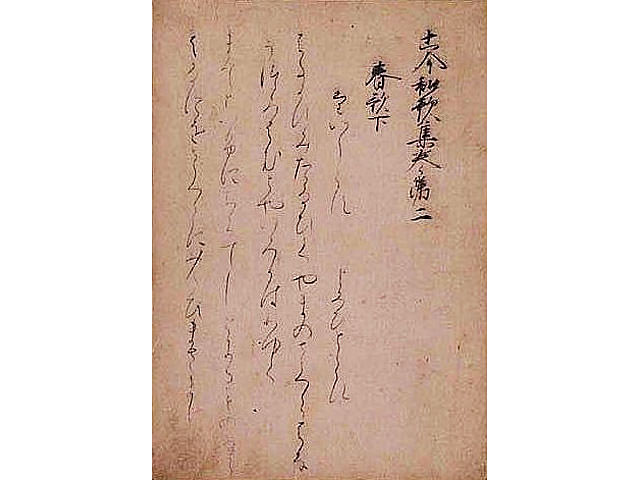 古今和歌集巻第二
春歌下
たいしらす　よみひとしらす
はるかすみたなひくやまのさくらはな
うつろはむとやいろかはりゆく
まてといふにちらてしとまるものならは
なにをさくらにおもひまさまし